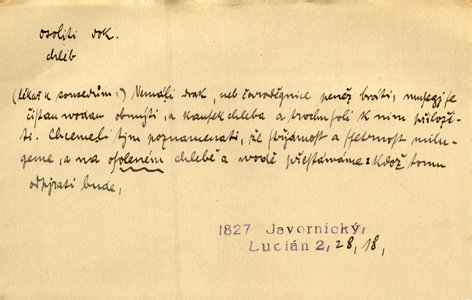 osoliti rok.
chléb
(lékař k sousedům:) Nemali drak, neb čaroděgnice peněz bráti, musegj se
čistau wodau obmýti, a kausek chleba a trochu soli k nim přilože-
ti. Chceme tjm poznamenati, že střjdmost a sstrnost milu-
geme, a na osoleném chlebě a wodě přestáwáme: Kdož tomu
odpjrati bude,
1827 Javornický,
Lucián 2, 28, 18,